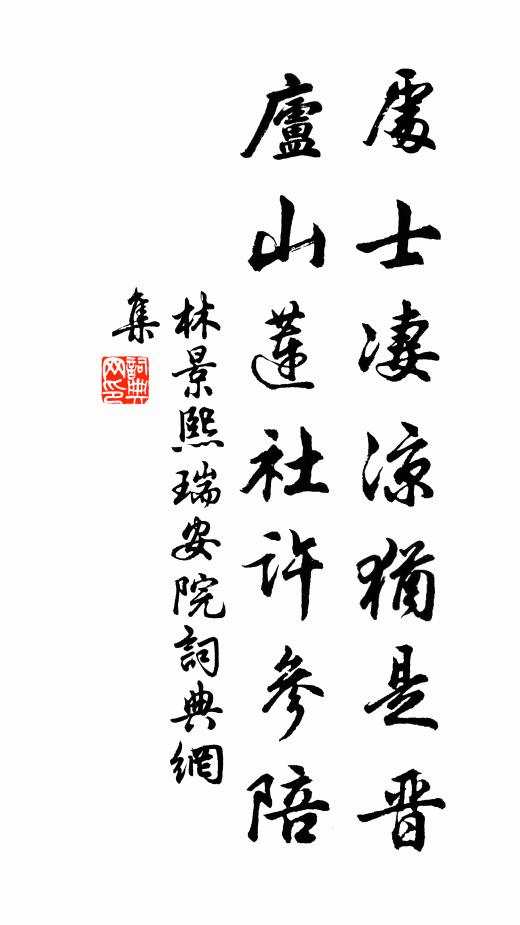 處士凄涼猶是晋
廬山蓮社許參陪
林景熙瑞安院詞典網
集
詞典
网印